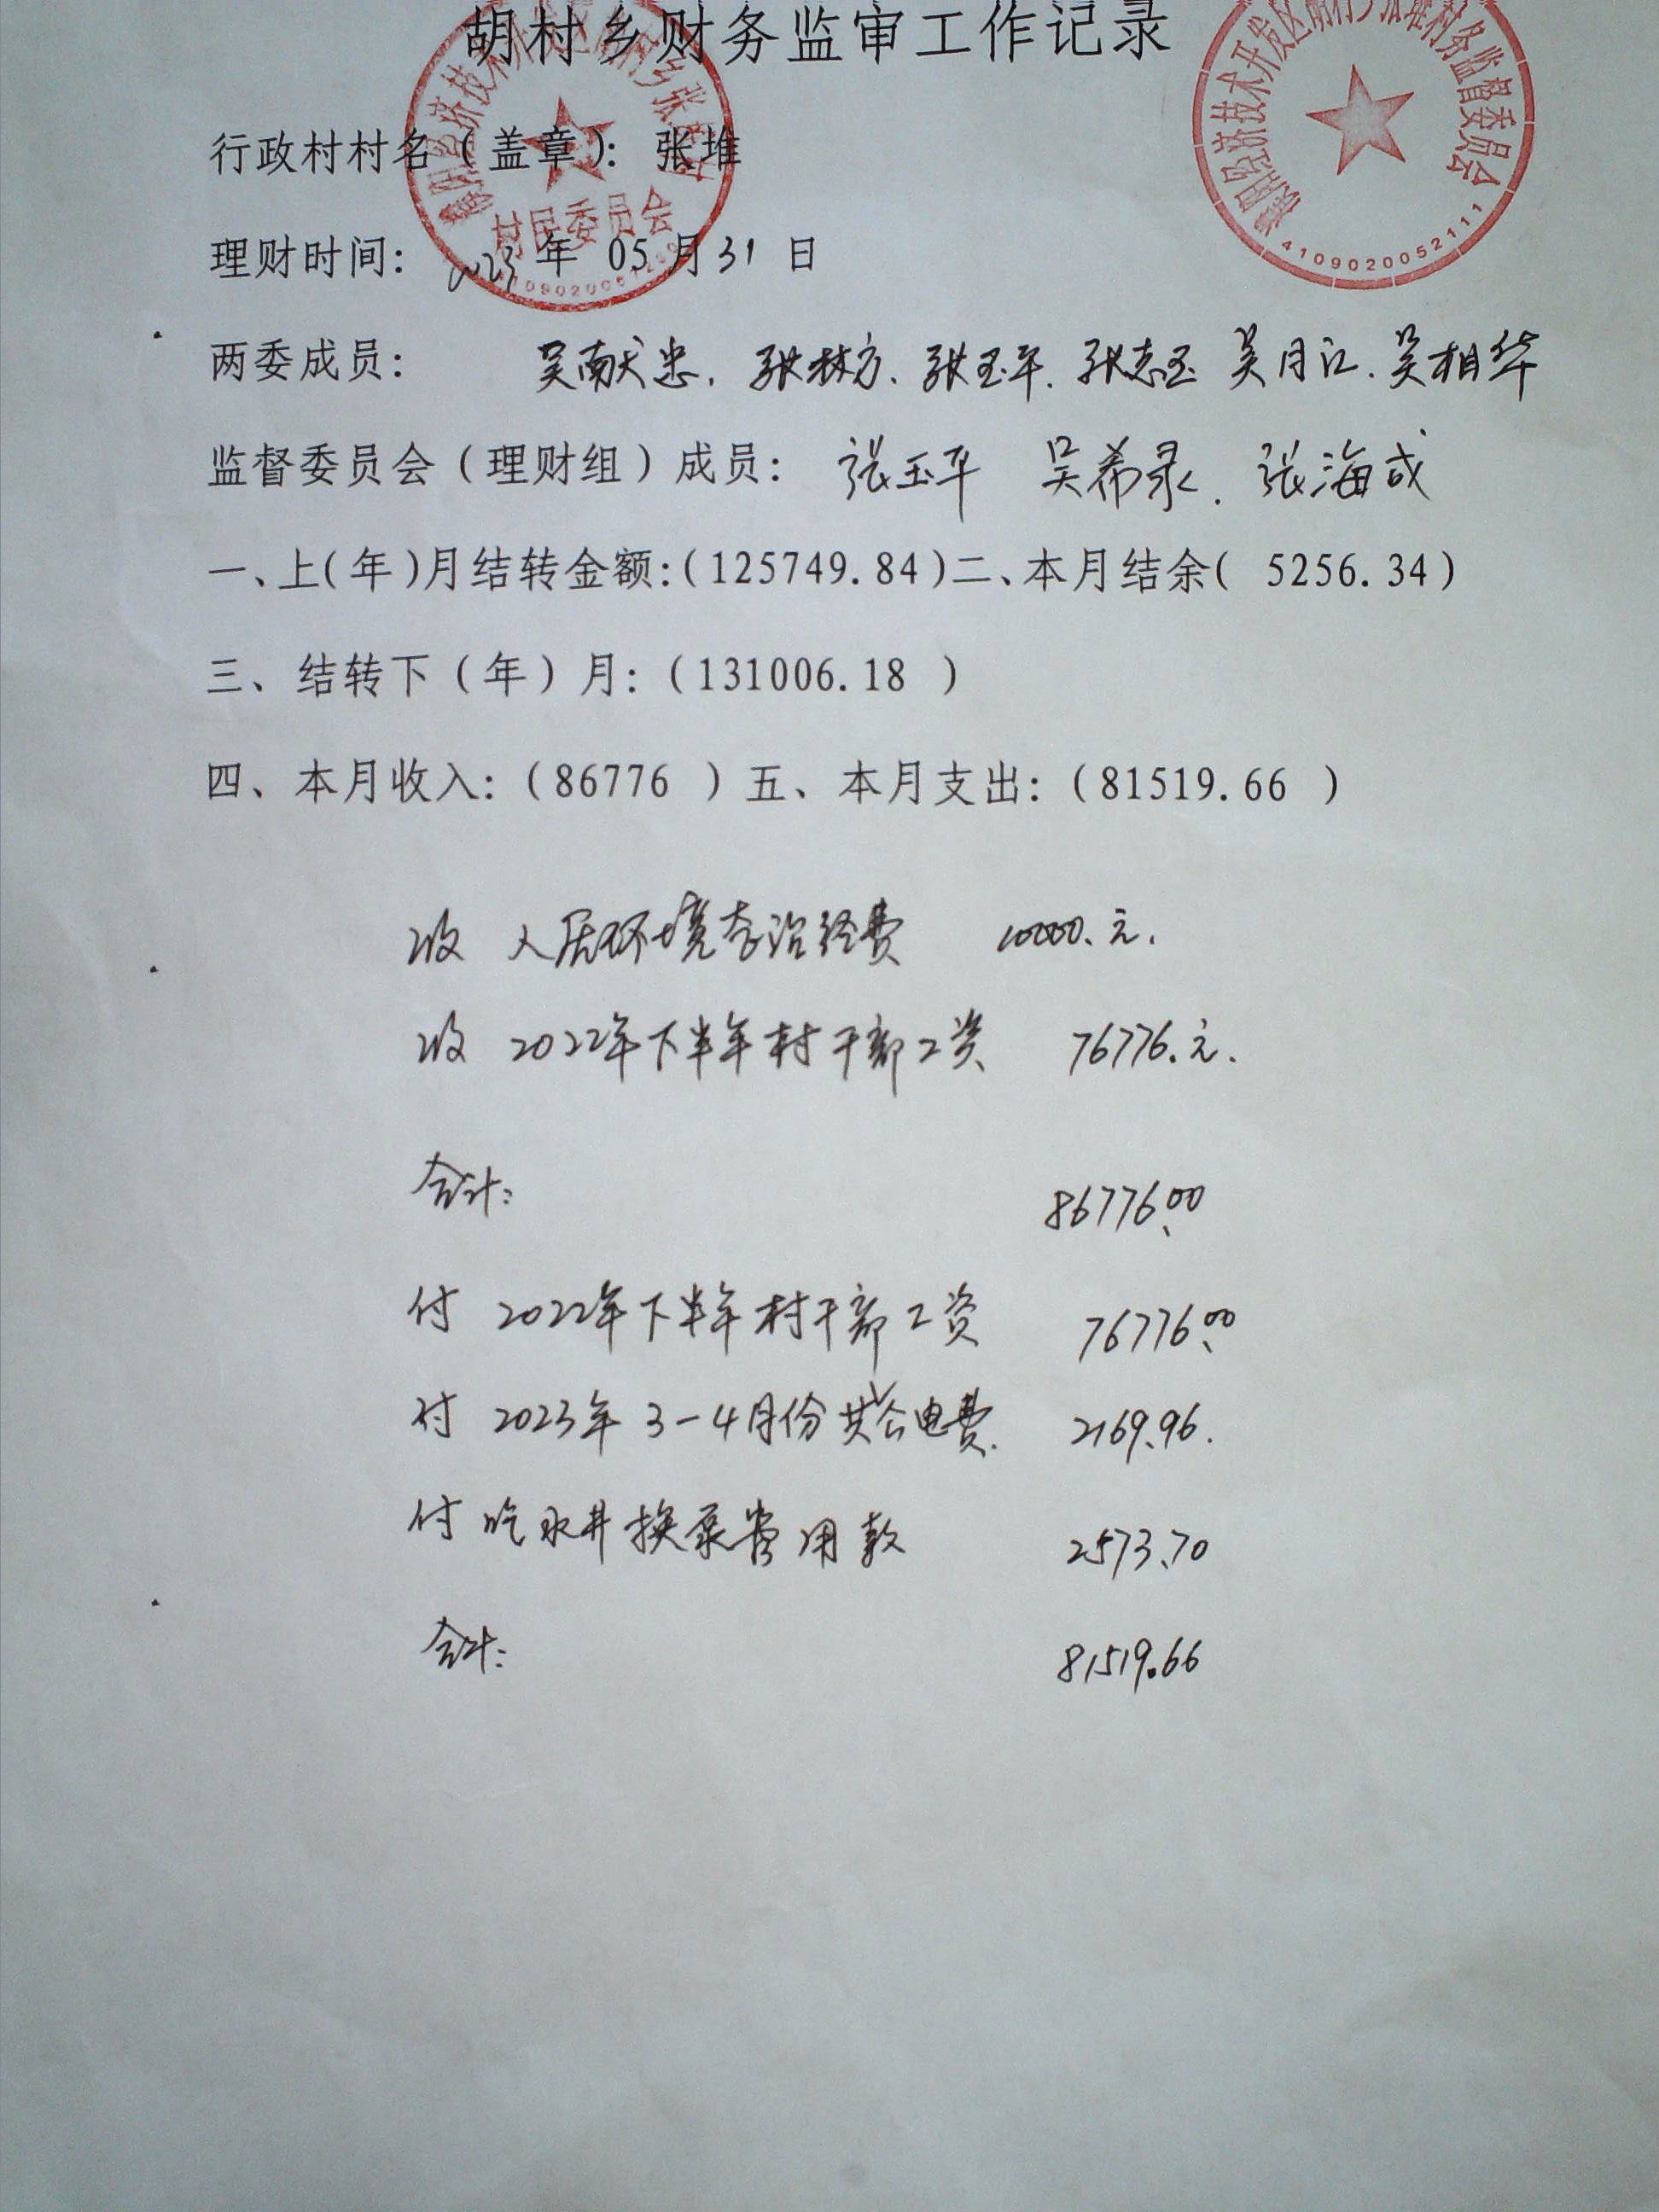 胡村乡财务监审工作记录
行政村村名(盖章): 张堆
村民委员会
濮阳经济技术开发区胡村乡张堆村务监督委员会
4109020052111
理财时间: 2023年 05 月 31 日
两委成员: 吴献忠. 张林方. 张玉平. 张志玉 吴月江. 吴相华
监督委员会(理财组)成员: 张玉平 吴希录. 张海成
一、上(年)月结转金额:(125749.84)二、本月结余( 5256.34)
三、结转下(年)月:(131006.18 )
四、本月收入:(86776 )五、本月支出:(81519.66 )
收 人居环境查治经费 10000.元.
收 2022年下半年村干部工资 76776.元.
合计: 86776.00
付 2022年下半年村干部工资 76776.00
付 2023年3-4月份公共电费. 2169.96.
付 吃水井换泵费用款 2573.70
合计: 81519.66